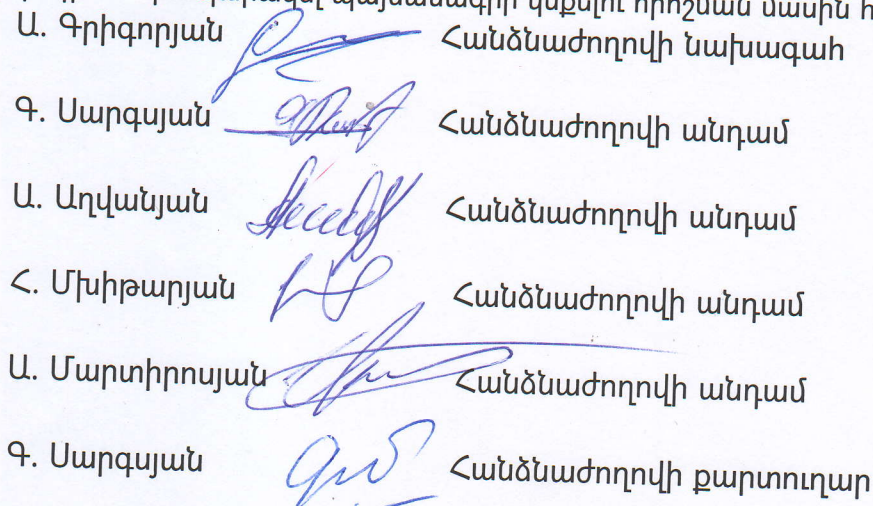 պայմանագիր կնքելու որոշման մասին
Ա. Գրիգորյան Հանձնաժողովի նախագահ
Գ. Սարգսյան Հանձնաժողովի անդամ
Ա. Աղվանյան Հանձնաժողովի անդամ
Հ. Մխիթարյան Հանձնաժողովի անդամ
Ա. Մարտիրոսյան Հանձնաժողովի անդամ
Գ. Սարգսյան Հանձնաժողովի քարտուղար